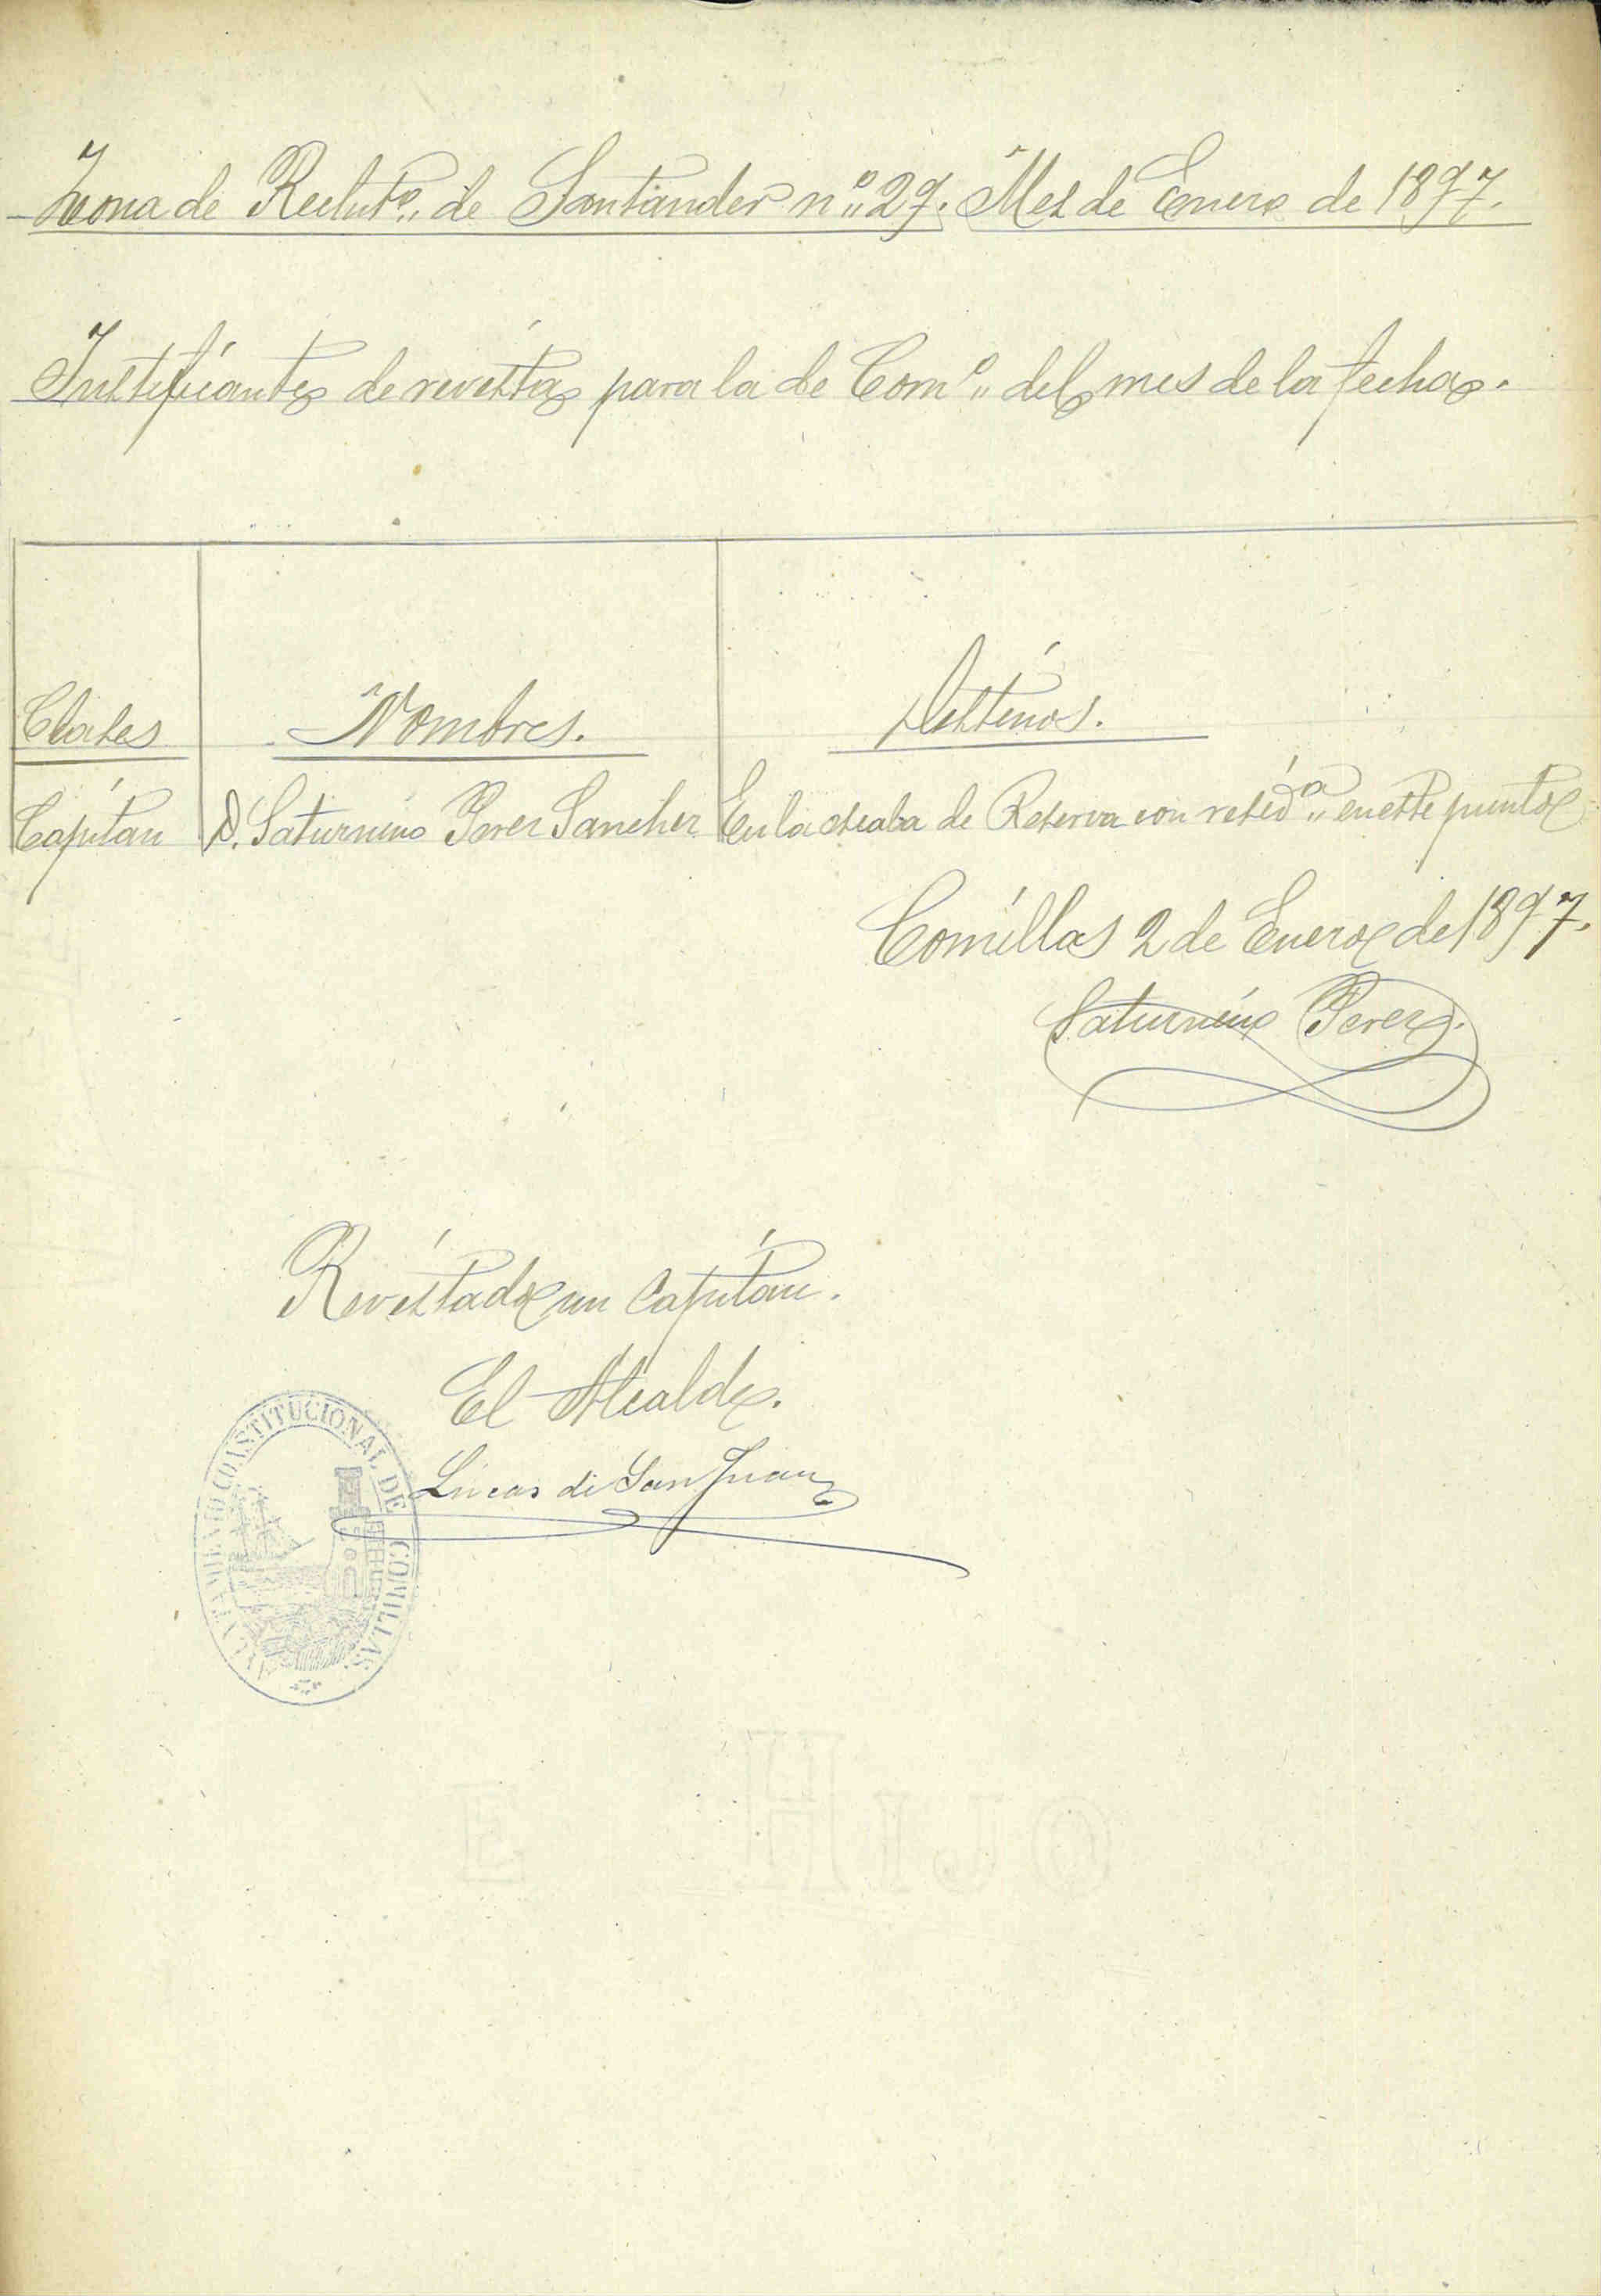 Zona de Reclutº de Santander nº 29. Mes de Enero de 1897.
Justificante de revista para la de Comº del mes de la fecha.
Clases Nombres. Destinos.
Capitan D. Saturnino Perez Sanchez En la escala de Reserva con residª en este punto
Comillas 2 de Enero de 1897.
Saturnino Perez.
Revistado un Capitan.
El Alcalde.
Lucas de San Juan
ALCALDIA CONSTITUCIONAL DE COMILLAS